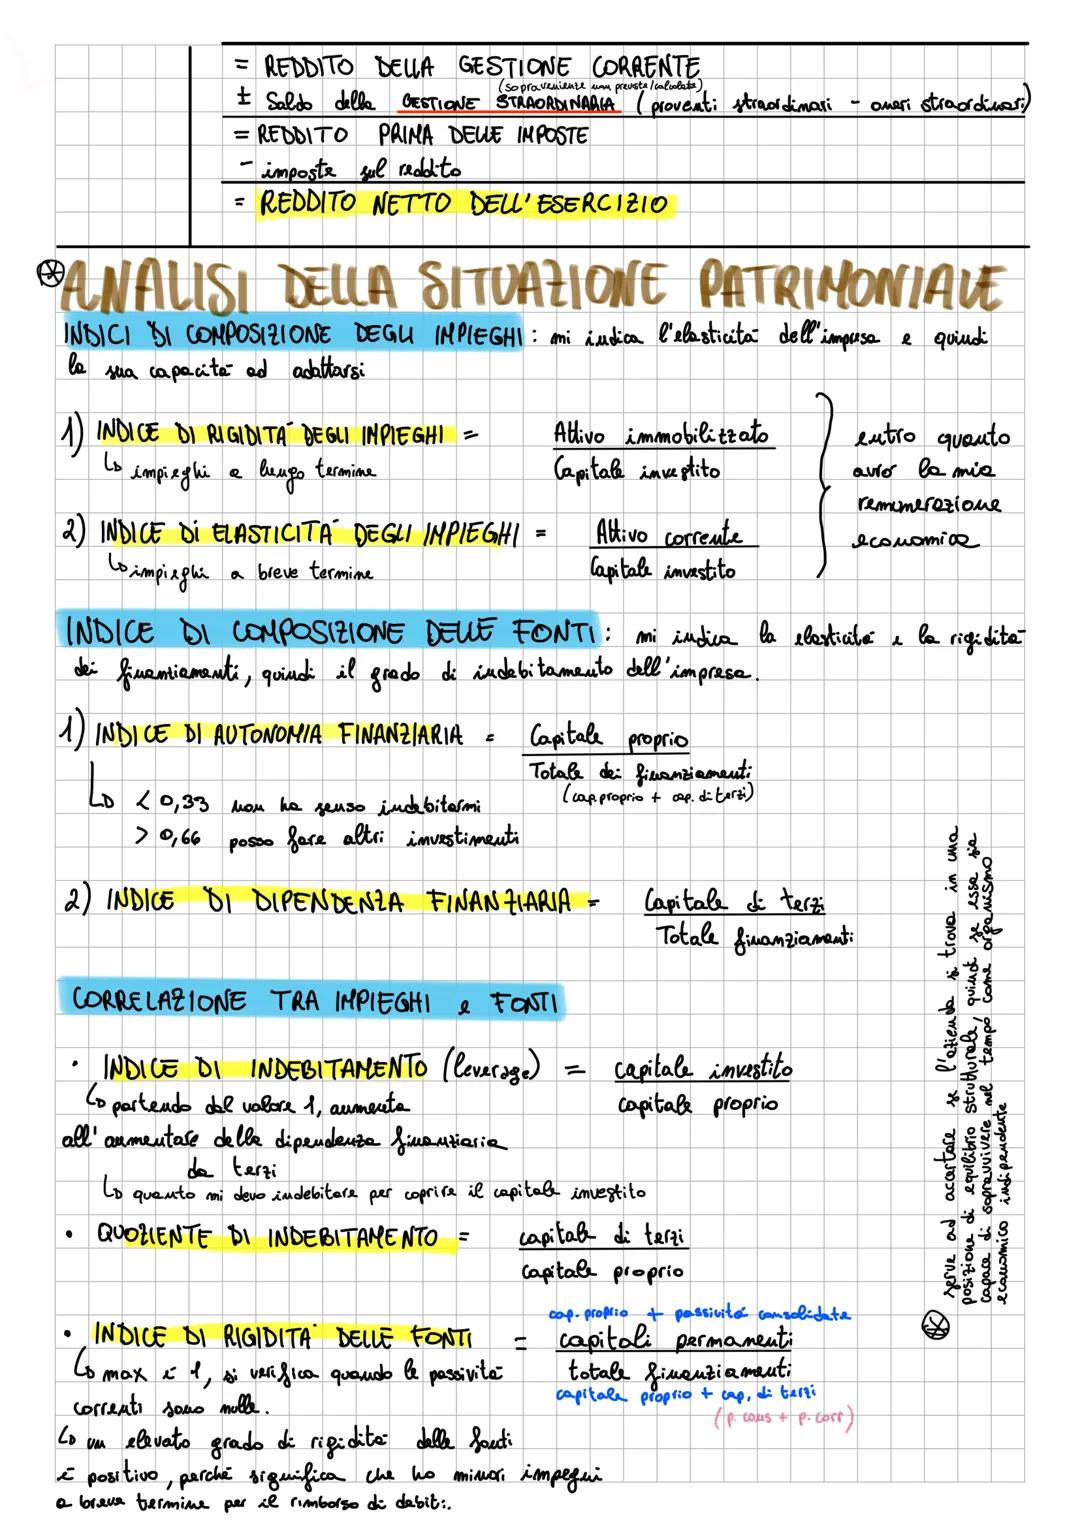 = REDDITO DELLA GESTIONE CORRENTE
(sopravvenienze non previste/calcolate)
± Saldo della GESTIONE STRAORDINARIA (proventi straordinari - oneri straordinari)
= REDDITO PRIMA DELLE IMPOSTE
- imposte sul reddito
= REDDITO NETTO DELL'ESERCIZIO
ANALISI DELLA SITUAZIONE PATRIMONIALE
INDICI DI COMPOSIZIONE DEGLI IMPIEGHI: mi indica l'elasticità dell'impresa e quindi
la sua capacità ad adattarsi
1) INDICE DI RIGIDITA' DEGLI IMPIEGHI = Attivo immobilizzato
↳ impieghi a lungo termine Capitale investito
2) INDICE DI ELASTICITA' DEGLI IMPIEGHI = Attivo corrente
↳ impieghi a breve termine Capitale investito
entro quanto
avrò la mia
remunerazione
economica
INDICE DI COMPOSIZIONE DELLE FONTI: mi indica la elasticità e la rigidità
dei finanziamenti, quindi il grado di indebitamento dell'impresa.
1) INDICE DI AUTONOMIA FINANZIARIA = Capitale proprio
Totale dei finanziamenti
(cap. proprio + cap. di terzi)
↳ < 0,33 non ha senso indebitarmi
> 0,66 posso fare altri investimenti
2) INDICE DI DIPENDENZA FINANZIARIA = Capitale di terzi
Totale finanziamenti
CORRELAZIONE TRA IMPIEGHI e FONTI
• INDICE DI INDEBITAMENTO (leverage) = capitale investito
↳ partendo dal valore 1, aumenta capitale proprio
all'aumentare della dipendenza finanziaria
da terzi
↳ quanto mi devo indebitare per coprire il capitale investito
• QUOZIENTE DI INDEBITAMENTO = capitale di terzi
capitale proprio
cap. proprio + passività consolidate
• INDICE DI RIGIDITA' DELLE FONTI = capitali permanenti
↳ max è 1, si verifica quando le passività totale finanziamenti
capitale proprio + cap. di terzi
correnti sono nulle.
(p. cons + p. corr)
↳ un elevato grado di rigidità delle fonti
è positivo, perché significa che ho minori impegni
a breve termine per il rimborso di debiti.
serve ad accertare se l'azienda si trova in una
posizione di equilibrio strutturale, quindi se essa sia
capace di sopravvivere nel tempo come organismo
economico indipendente